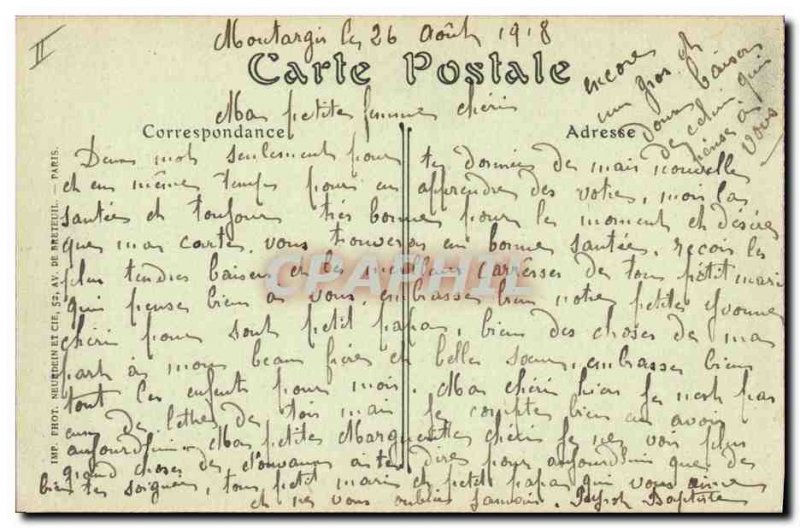 II
Montargis le 26 Août 1918
Carte Postale
Ma petites femme chéri
encores
un gros et
doux baisers
de celui qui
pense à
vous
Correspondance
Adresse
Deux mot seulement pour tes donnés de mais nouvelles
et en même temps pour en apprendres des votres, moi la
santées et toujour très bonne pour le moment et désires
que ma carte vous trouveras en bonne santées, reçois les
plus tendres baisers et les meilleurs carresses de tons petit mari
qui penses bien a vous. embrasses bien notre petites Yvonne
chéri pour sont petit papa, bien des choses de ma
part à mon beau frères et belles soeur, embrasses bien
tout les enfents pour moi. Ma chéri hier je nest pas
eux de lettres de toi mais je comptes bien en avoir
aujourdhui. Ma petites Marguerites chéris je ne vois plus
grand choses de nouveaux a tes dires pour aujourdhui que de
bien tes soigner, tons petit maris et petit papa qui vous aime
et ne vous oublies jamais. Baptiste
IMP. PHOT. NEURDEIN ET CIE, 52, AV. DE BRETEUIL. — PARIS.
CPAPHIL